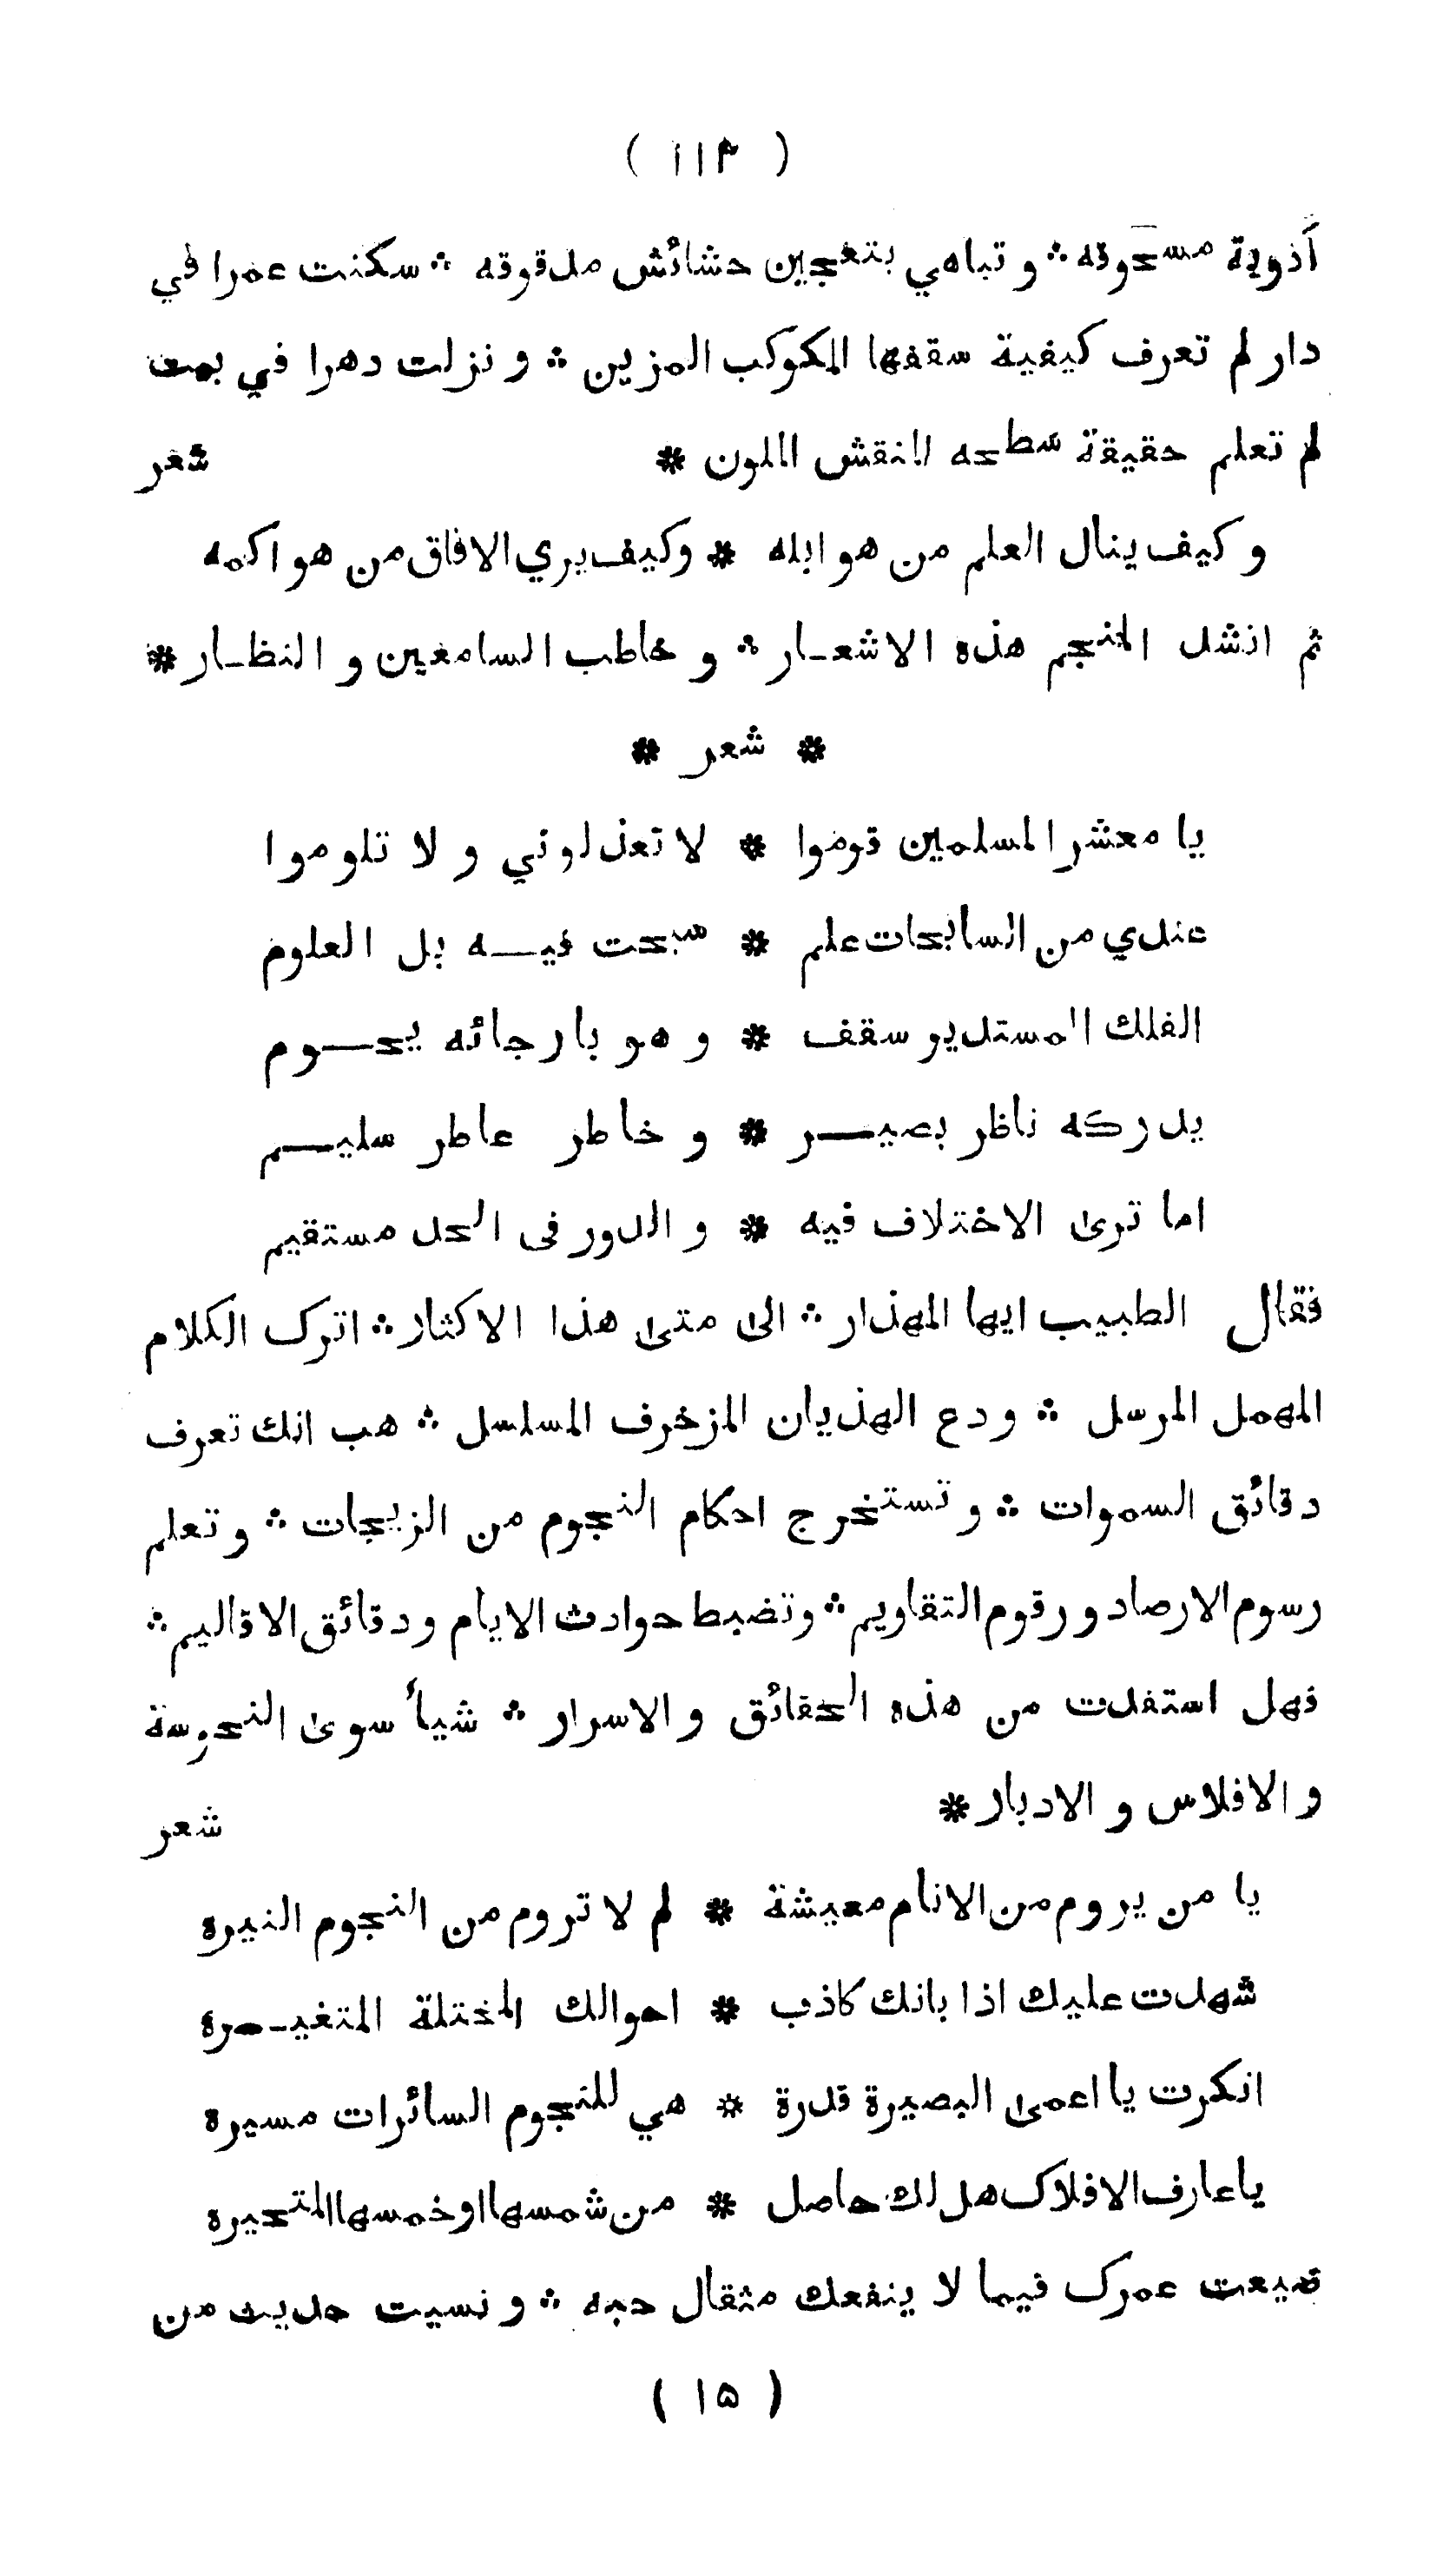 ( ١١٣ )
أدوية مسحوقه ∴ و تباهي بتعجين حشائش مدقوقه ∴ سكنت عمرا في
دار لم تعرف كيفية سقفها المكوكب المزين ∴ و نزلت دهرا في بيت
لم تعلم حقيقة سطحه المنقش الملون * شعر
و كيف ينال العلم من هو ابله * وكيف يري الافاق من هو اكمه
ثم انشد المنجم هذه الاشعار ∴ و خاطب السامعين و النظار *
* شعر *
يا معشر المسلمين قوموا * لا تعذلوني و لا تلوموا
عندي من السابحات علم * سبحت فيه بل العلوم
الفلك المستدير سقف * و هو بارجائه يحوم
يدركه ناظر بصير * و خاطر عاطر سليم
اما ترى الاختلاف فيه * و الدور فى الحد مستقيم
فقال الطبيب ايها المهذار ∴ الى متى هذا الاكثار ∴ اترك الكلام
المهمل المرسل ∴ و دع الهذيان المزخرف المسلسل ∴ هب انك تعرف
دقائق السموات ∴ و تستخرج احكام النجوم من الزيجات ∴ و تعلم
رسوم الارصاد و رقوم التقاويم ∴ و تضبط حوادث الايام و دقائق الاقاليم ∴
فهل استفدت من هذه الحقائق و الاسرار ∴ شيأ سوى النحوسة
و الافلاس و الادبار * شعر
يا من يروم من الانام معيشة * لم لا تروم من النجوم النيره
شهدت عليك اذا بانك كاذب * احوالك المختلة المتغيره
انكرت يا اعمى البصيرة قدرة * هي للنجوم السائرات مسيره
يا عارف الافلاك هل لك حاصل * من شمسها او خمسها المتحيره
ضيعت عمرك فيما لا ينفعك مثقال حبه ∴ و نسيت حديث من
( ١٥ )